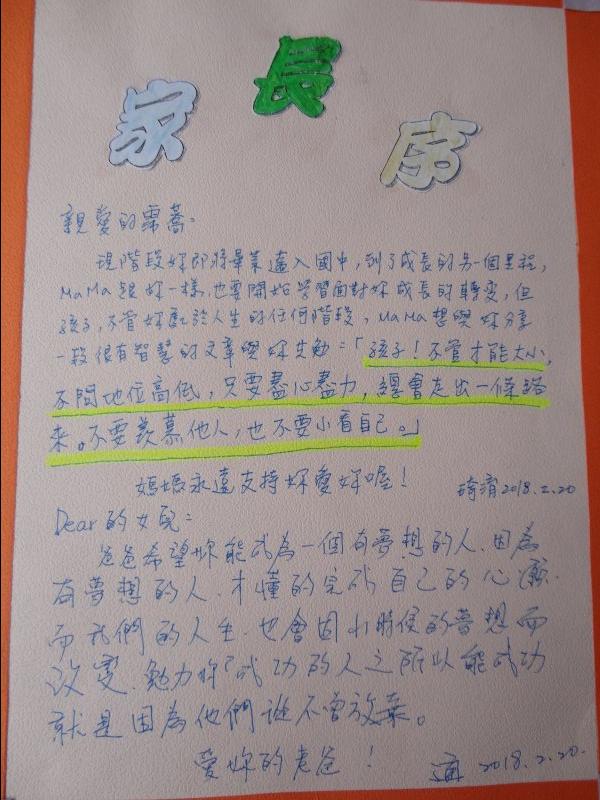 家長序
親愛的霈蕎:
現階段妳即將畢業邁入國中,到了成長的另一個里程,
MaMa跟妳一樣,也要開始學習面對妳成長的轉變,但
孩子,不管妳處於人生的任何階段,MaMa想與妳分享
一段很有智慧的文章與妳共勉:「孩子!不管才能大小,
不問地位高低,只要盡心盡力,總會走出一條路
來。不要羨慕他人,也不要小看自己。」
媽媽永遠支持妳愛妳喔! 2018.2.20
Dear的女兒:
爸爸希望妳能成為一個有夢想的人.因為
有夢想的人.才懂的完成自己的心願.
而我們的人生.也會因小時候的夢想而
改變.勉力妳「成功的人之所以能成功
就是因為他們從不曾放棄。
愛妳的老爸! 2018.2.20.